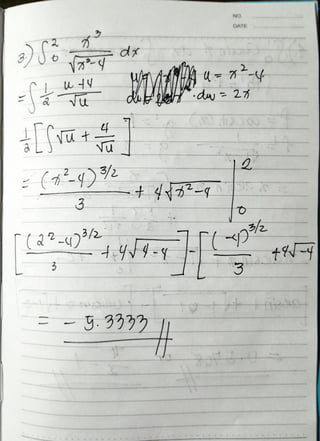 NO.
DATE
3.) ∫₀² x³/√(x²-4) dx
= ∫ 1/2 (u+4)/√u    u = x²-4
du = 2x
1/2 [∫ √u + 4/√u]
= (x²-4)^(3/2)/3 + 4√(x²-4) |₀²
[(2²-4)^(3/2)/3 + 4√(4-4)] - [(-4)^(3/2)/3 + 4√-4
= -5.3333 //